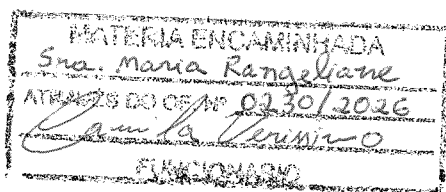 MATERIA ENCAMINHADA
Sra. Maria Rangeliane
ATRAVES DO OF. Nº 0230/2026
Camila Verissimo
FUNCIONARIO